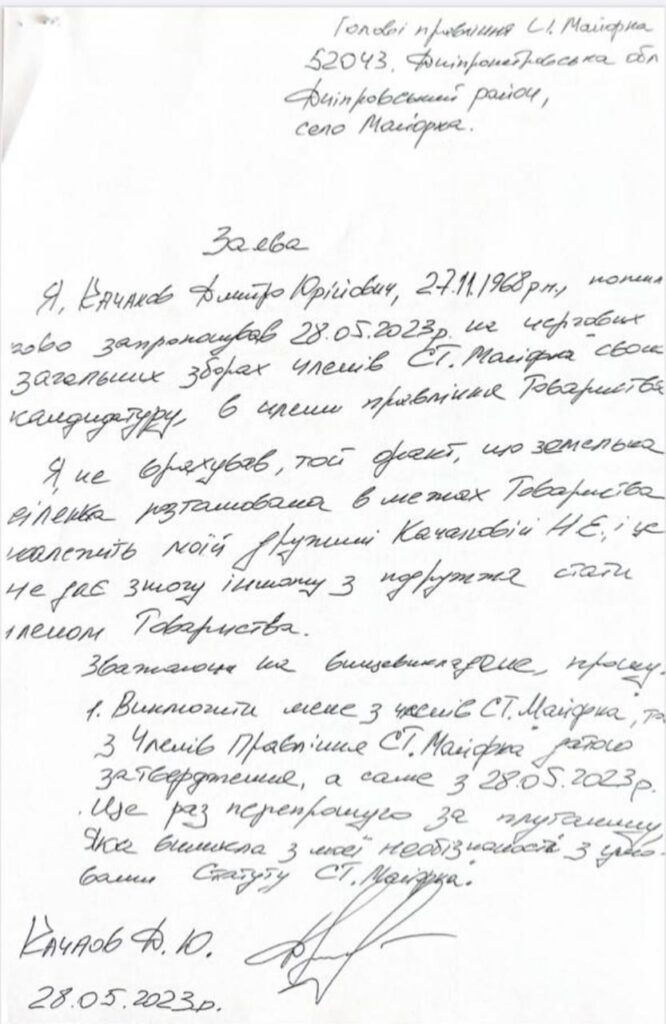 Голові правління СТ. Майорка
52043. Дніпропетровська обл
Дніпровський район,
село Майорка.
Заява
Я, Качанов Дмитро Юрійович, 27.11.1968р.н., помил
ково запропонував 28.05.2023р. на чергових
загальних зборах членів СТ. "Майорка" свою
кандидатуру, в члени правління Товариства
Я не врахував, той факт, що земельна
ділянка розташована в межах Товариства
належить моїй дружині Качановій Н.Є, і це
не дає змогу іншому з подружжя стати
членом Товариства.
Зважаючи на вищевикладене, прошу.
1. Виключити мене з членів СТ. "Майорка", та
з Членів Правління СТ. "Майорка" датою
затвердження, а саме з 28.05.2023р.
Ще раз перепрошую за плутанину
Яка виникла з моєї необізнаності з умо-
вами Статуту СТ. "Майорка".
Качанов Д. Ю.
28.05.2023р.